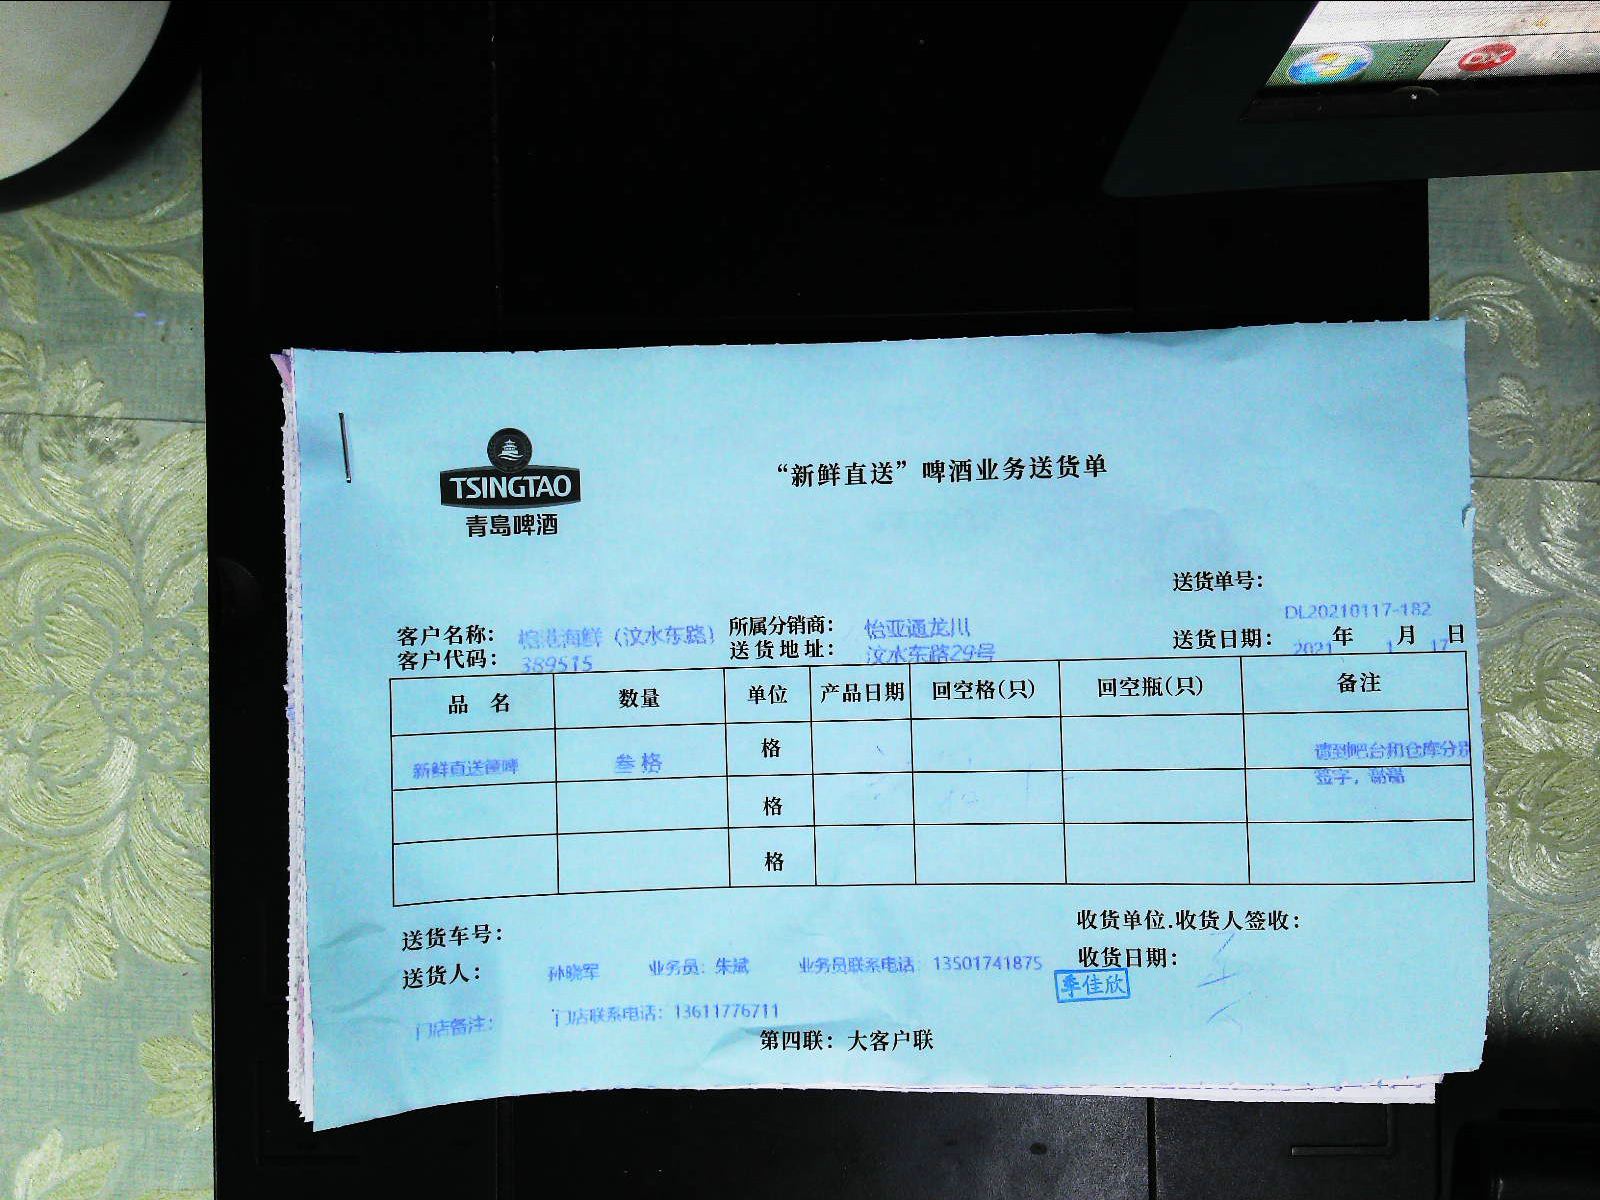 TSINGTAO
青岛啤酒
“新鲜直送”啤酒业务送货单
送货单号：
DL20210117-182
客户名称： 榕港海鲜（汶水东路） 所属分销商： 怡亚通龙川 送货日期： 2021 年 1 月 17 日
客户代码： 389515 送货地址： 汶水东路29号
品 名 数量 单位 产品日期 回空格(只) 回空瓶(只) 备注
新鲜直送 叁 格 格 请到吧台和仓库分别
签字，谢谢
格
格
送货车号： 收货单位.收货人签收：
送货人： 孙晓军 业务员：朱斌 业务员联系电话：13501741875 收货日期：
季佳欣
门店备注： 门店联系电话：13611776711
第四联：大客户联